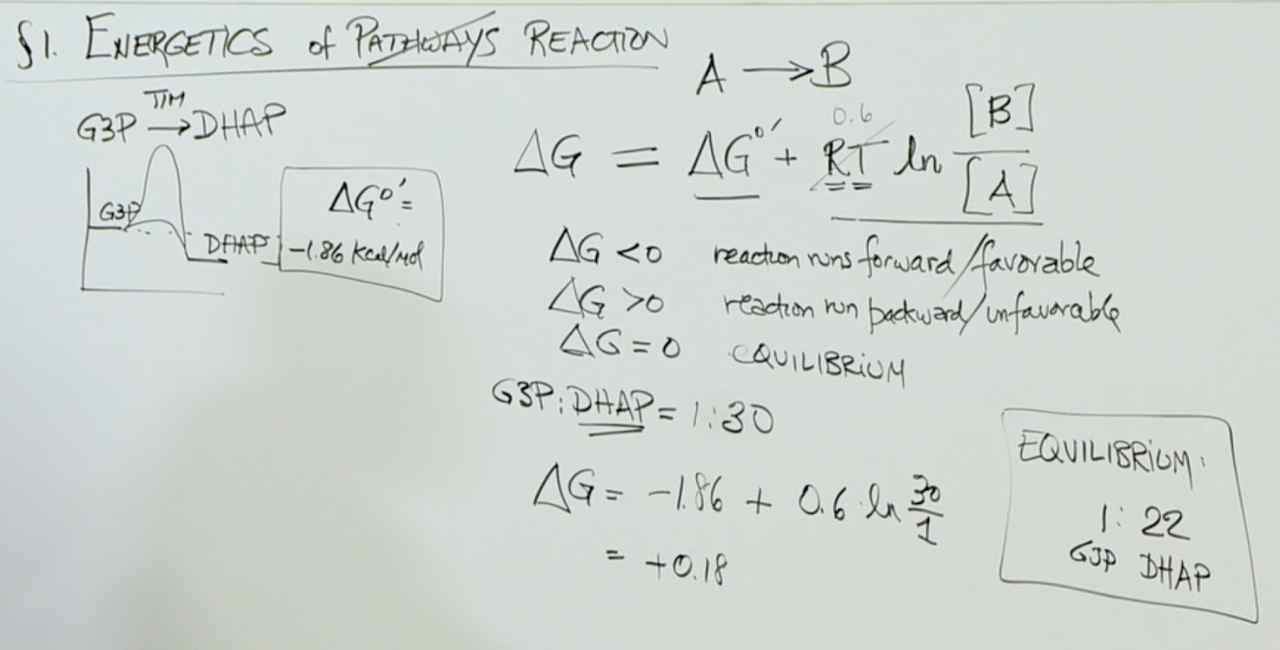 §1. ENERGETICS of PATHWAYS REACTION
TIM
G3P → DHAP
G3P
DHAP
ΔG°′ =
-1.86 Kcal/mol
A → B
ΔG = ΔG°′ + RT ln [B]/[A]
0.6
ΔG < 0 reaction runs forward/favorable
ΔG > 0 reaction run backward/unfavorable
ΔG = 0 EQUILIBRIUM
G3P:DHAP = 1:30
ΔG = -1.86 + 0.6 ln 30/1
= +0.18
EQUILIBRIUM:
1:22
G3P DHAP